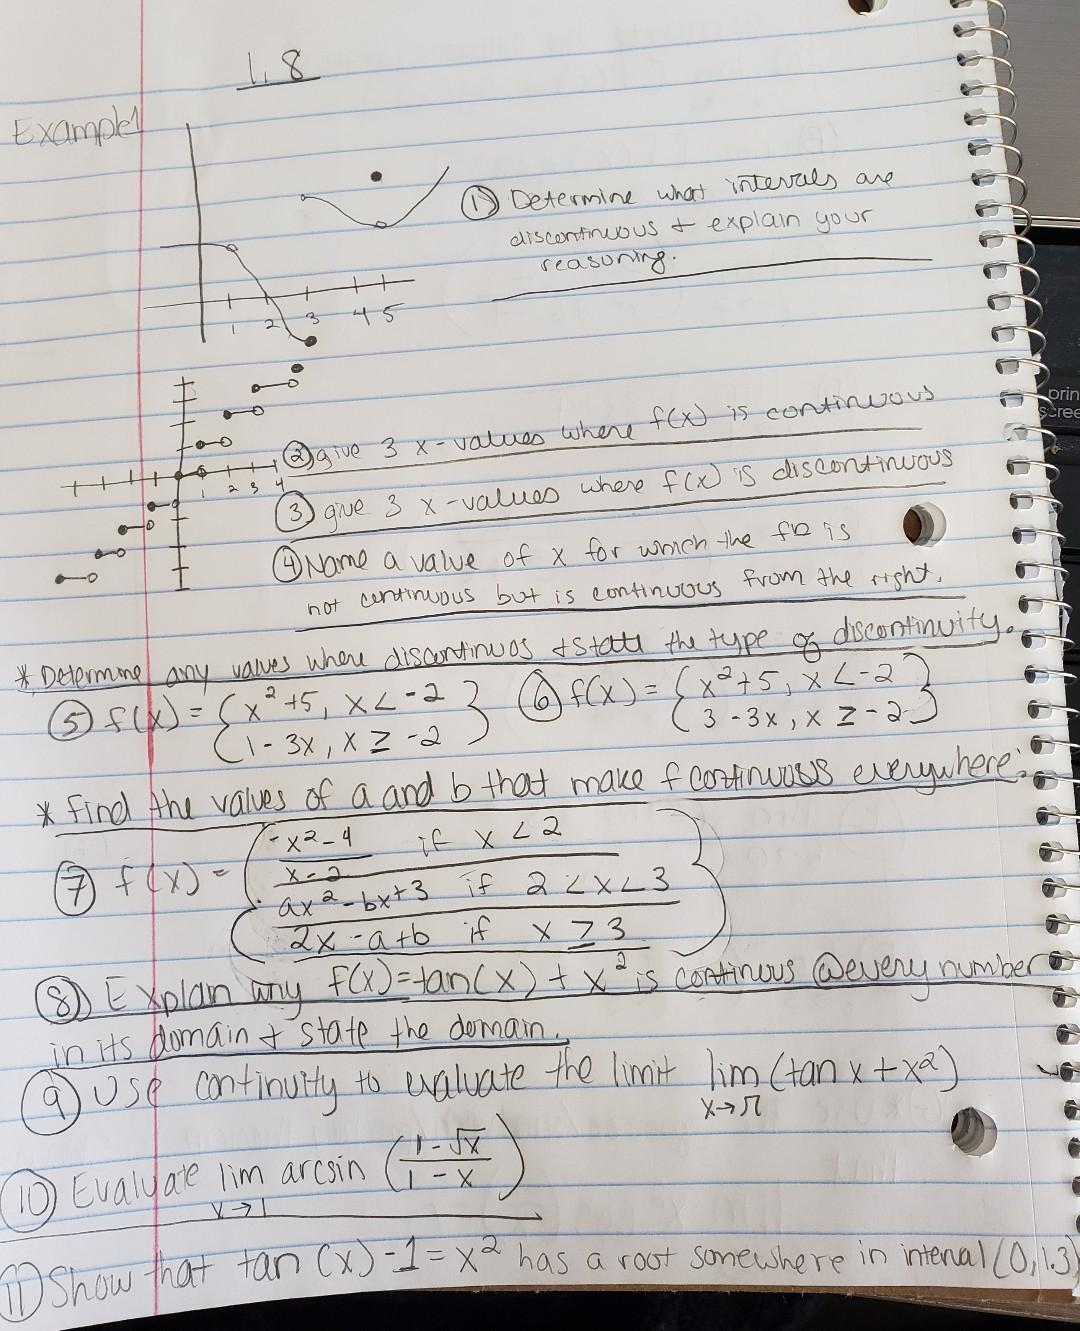 1.8
Example1
① Determine what intervals are
discontinuous + explain your
reasoning.
1 2 3 4 5
② give 3 x-values where f(x) is continuous
1 2 3 4
③ give 3 x-values where f(x) is discontinuous
④ Name a value of x for which the is
not continuous but is continuous from the right.
* Determine any values where discontinuos + state the type of discontinuity.
⑤ f(x) = { x² + 5, x < -2
1 - 3x, x ≥ -2 }
⑥ f(x) = { x² + 5, x < -2
3 - 3x, x ≥ -2 }
* Find the values of a and b that make f continuous everywhere:
x² - 4 if x < 2
⑦ f(x) = x - 2
ax² - bx + 3 if 2 < x < 3
2x - a + b if x ≥ 3
⑧ Explan why f(x) = tan(x) + x² is continous @ every number
in its domain + state the domain.
⑨ Use continuity to evaluate the limit lim (tan x + x²)
x → π
⑩ Evaluate lim arcsin (1 - √x / 1 - x)
x → 1
⑪ Show that tan (x) - 1 = x² has a root somewhere in interval (0, 1.3)
prin
scree